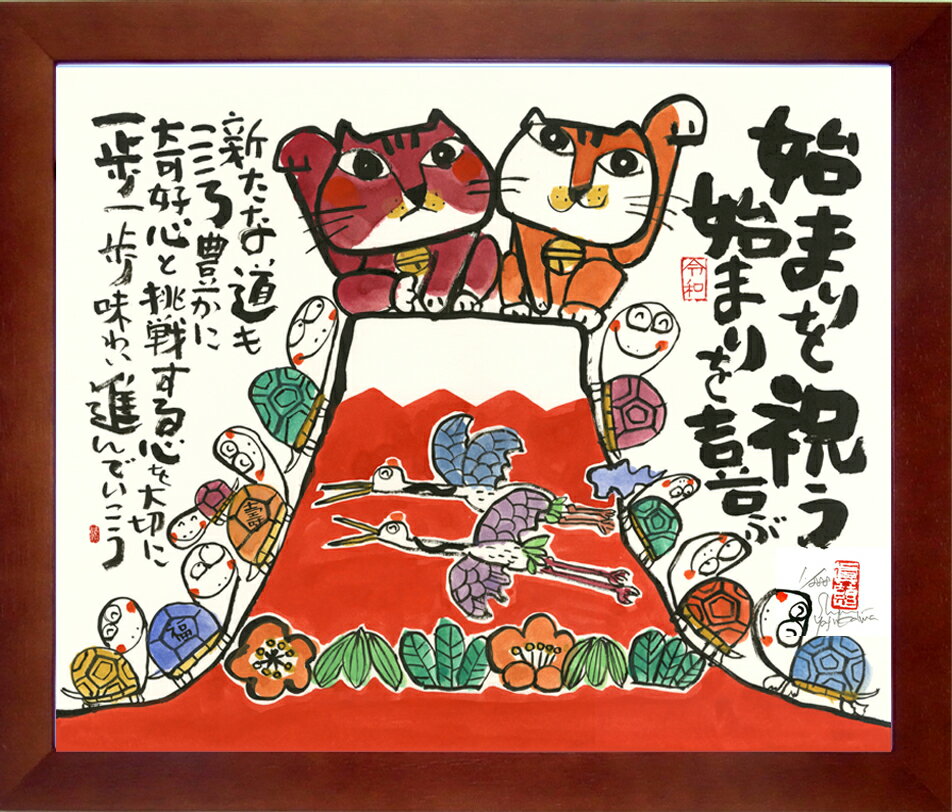 始まりを祝う
始まりを吉言ぶ
令和
新たな道も
こころ豊かに
奇好心と挑戦する心を大切に
一歩一歩味わい進んでいこう
壽
福
1/888